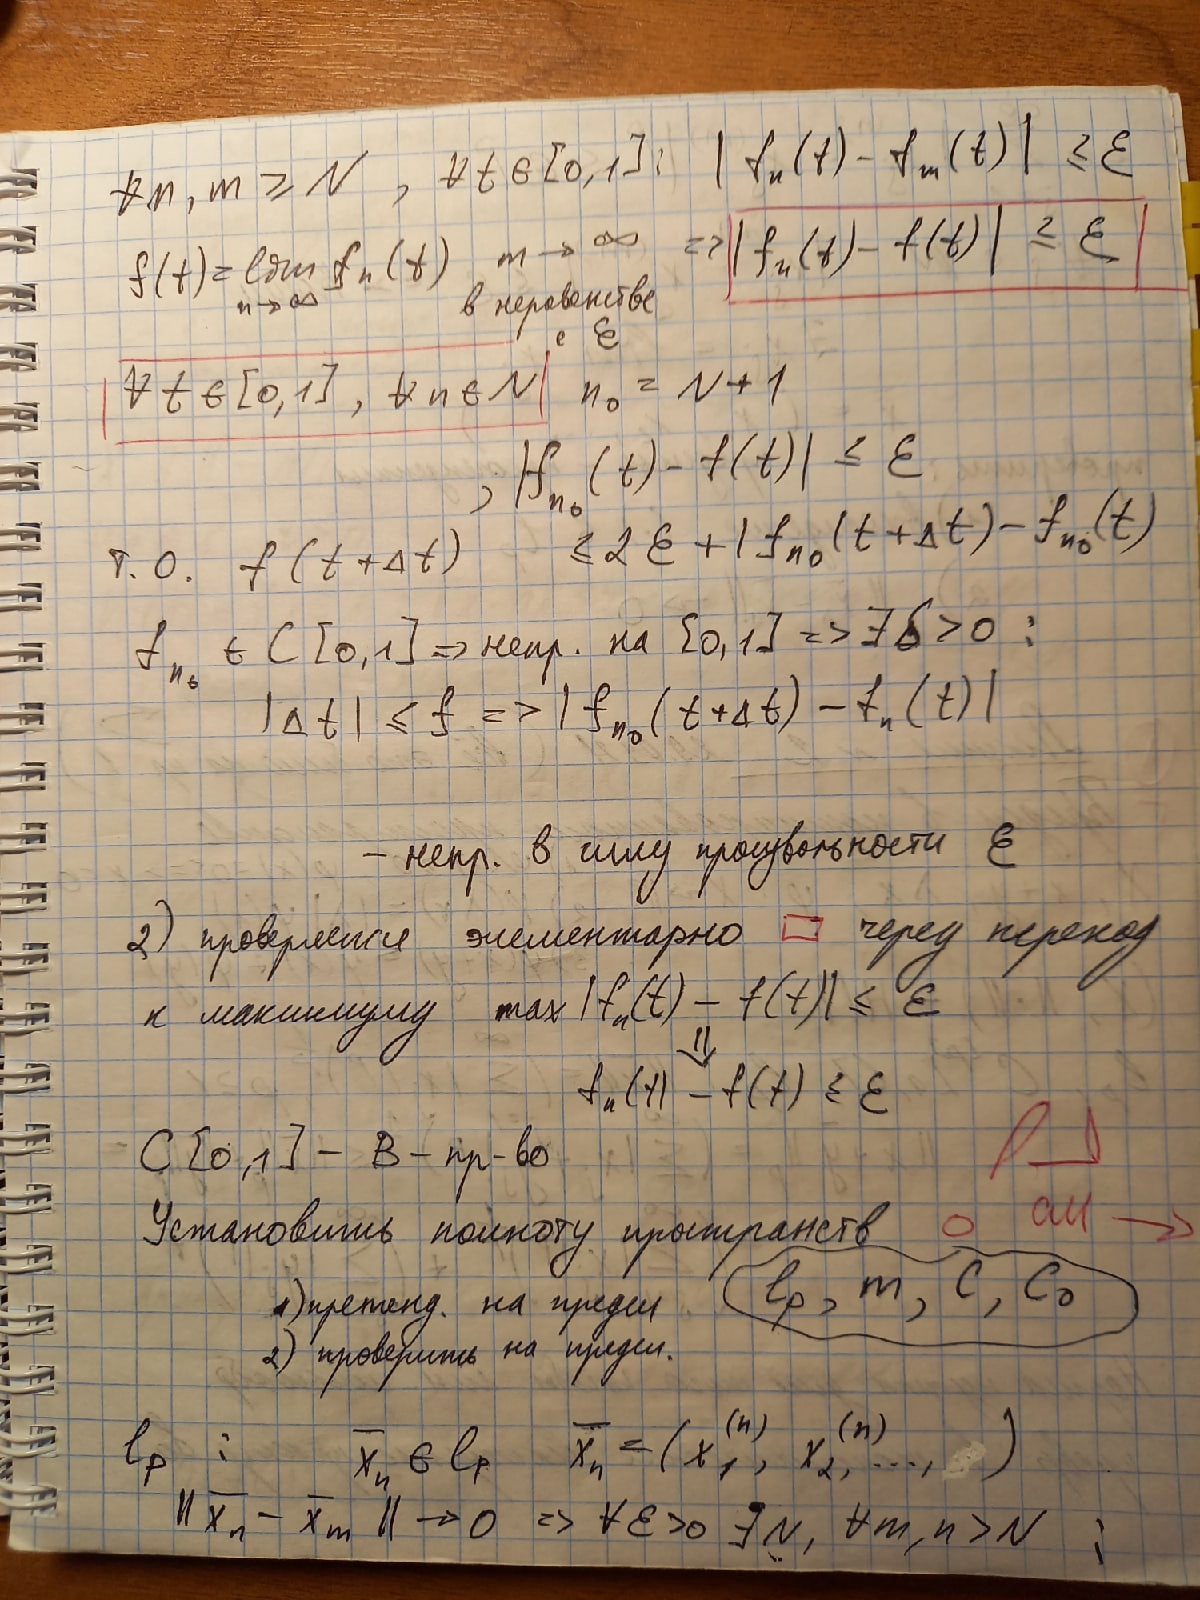 ∀n, m ≥ N , ∀t∈[0,1]: |fₙ(t) - fₘ(t)| ≤ ε
f(t) = lim fₙ(t) m→∞ => |fₙ(t) - f(t)| ≤ ε
n→∞ в неравенстве
с ε
∀t∈[0,1], ∀n∈N n₀ = N+1
, |fₙ₀(t) - f(t)| ≤ ε
т.о. f(t+Δt) ≤ 2ε + |fₙ₀(t+Δt) - fₙ₀(t)
fₙ₀ ∈ C[0,1] => непр. на [0,1] => ∃δ>0 :
|Δt| ≤ f => |fₙ₀(t+Δt) - fₙ(t)|
- непр. в силу произвольности ε
2) проверяется элементарно □ через переход
к максимуму max |fₙ(t) - f(t)| ≤ ε
⇓
fₙ(t) - f(t) ≤ ε
C[0,1] - B - пр-во
Установить полноту пространств о ДЗ →
lₚ, m, C, C₀
1) претенд. на предел
2) проверить на предел.
lₚ : x̅ₙ ∈ lₚ x̅ₙ = (x₁⁽ⁿ⁾, x₂⁽ⁿ⁾, ..., )
||x̅ₙ - x̅ₘ|| → 0 => ∀ε>0 ∃N, ∀m,n>N :